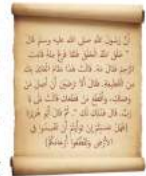 أنَّ رَسُولَ اللهِ صَلَّى اللهُ عليه وسلم قَالَ
" خَلَقَ اللهُ الخَلْقَ فَلَمَّا فَرَغَ مِنْهُ قَامَتِ
الرَّحِمُ فَقَالَ مَهْ، قَالَتْ هَذَا مَقَامُ الْعَائِذِ بِكَ
مِنَ القَطِيعَةِ. فَقَالَ أَلَا تَرْضَيْنَ أَنْ أَصِلَ مَنْ
وَصَلَكِ، وَأَقْطَعَ مَنْ قَطَعَكِ قَالَتْ بَلَى يَا
رَبِّ. قَالَ فَذَلِكِ لَكِ ". ثُمَّ قَالَ أَبُو هُرَيْرَةَ
{فَهَلْ عَسَيْتُمْ إِنْ تَوَلَّيْتُمْ أَنْ تُفْسِدُوا فِي
الأَرْضِ وَتُقَطِّعُوا أَرْحَامَكُمْ}